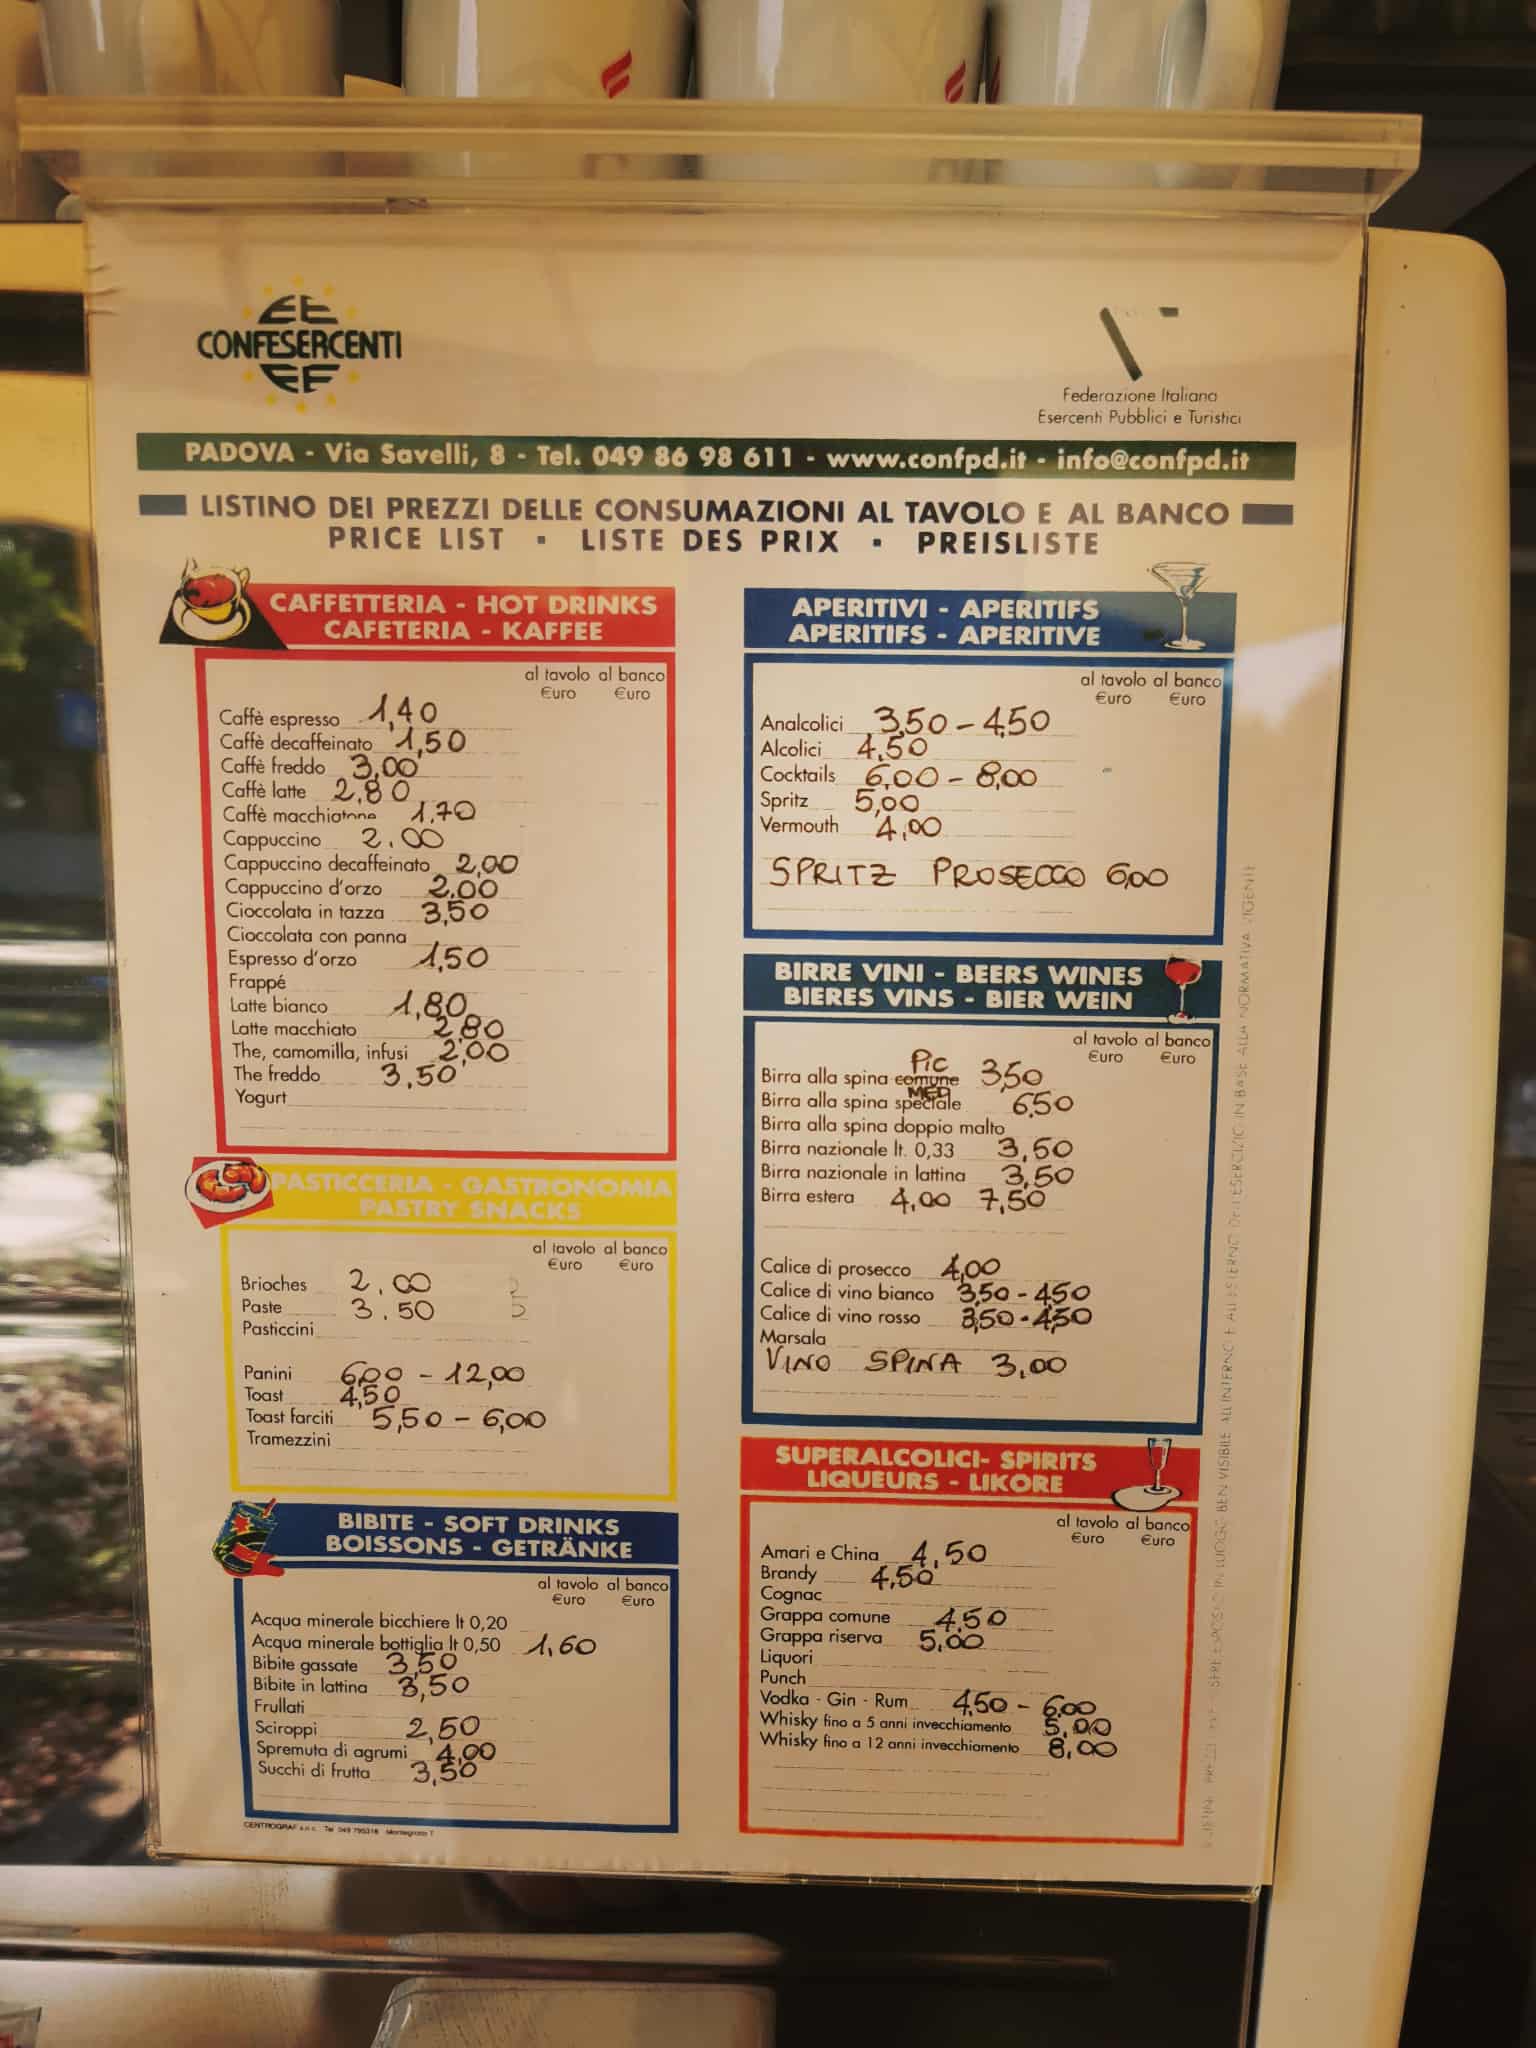 CONFESERCENTI
Federazione Italiana
Esercenti Pubblici e Turistici
PADOVA - Via Savelli, 8 - Tel. 049 86 98 611 - www.confpd.it - info@confpd.it
LISTINO DEI PREZZI DELLE CONSUMAZIONI AL TAVOLO E AL BANCO
PRICE LIST · LISTE DES PRIX · PREISLISTE
CAFFETTERIA - HOT DRINKS
CAFETERIA - KAFFEE
al tavolo al banco
€uro €uro
Caffè espresso 1,40
Caffè decaffeinato 1,50
Caffè freddo 3,00
Caffè latte 2,80
Caffè macchiatone 1,70
Cappuccino 2.00
Cappuccino decaffeinato 2,00
Cappuccino d'orzo 2.00
Cioccolata in tazza 3,50
Cioccolata con panna
Espresso d'orzo 1,50
Frappé
Latte bianco 1,80
Latte macchiato 2,80
The, camomilla, infusi 2,00
The freddo 3,50
Yogurt
PASTICCERIA - GASTRONOMIA
PASTRY SNACKS
al tavolo al banco
€uro €uro
Brioches 2.00
Paste 3.50
Pasticcini
Panini 6,00 - 12,00
Toast 4,50
Toast farciti 5,50 - 6,00
Tramezzini
BIBITE - SOFT DRINKS
BOISSONS - GETRÄNKE
al tavolo al banco
€uro €uro
Acqua minerale bicchiere lt 0,20
Acqua minerale bottiglia lt 0,50 1,60
Bibite gassate 3,50
Bibite in lattina 3,50
Frullati
Sciroppi 2,50
Spremuta di agrumi 4,00
Succhi di frutta 3,50
CENTROGRAF s.n.c. Tel 049 795318
APERITIVI - APERITIFS
APERITIFS - APERITIVE
al tavolo al banco
€uro €uro
Analcolici 3,50 - 4,50
Alcolici 4,50
Cocktails 6,00 - 8,00
Spritz 5,00
Vermouth 4,00
SPRITZ PROSECCO 6,00
BIRRE VINI - BEERS WINES
BIERES VINS - BIER WEIN
al tavolo al banco
€uro €uro
PIC
Birra alla spina comune 3,50
MED
Birra alla spina speciale 6,50
Birra alla spina doppio malto
Birra nazionale lt. 0,33 3,50
Birra nazionale in lattina 3,50
Birra estera 4,00 7,50
Calice di prosecco 4,00
Calice di vino bianco 3,50 - 4,50
Calice di vino rosso 3,50 - 4,50
Marsala
VINO SPINA 3,00
SUPERALCOLICI - SPIRITS
LIQUEURS - LIKORE
al tavolo al banco
€uro €uro
Amari e China 4,50
Brandy 4,50
Cognac
Grappa comune 4,50
Grappa riserva 5,00
Liquori
Punch
Vodka - Gin - Rum 4,50 - 6,00
Whisky fino a 5 anni invecchiamento 5,00
Whisky fino a 12 anni invecchiamento 8,00
ESPOSTO IN LUOGO BEN VISIBILE ALL'INTERNO E ALL'ESTERNO DELL'ESERCIZIO IN BASE ALLA NORMATIVA VIGENTE